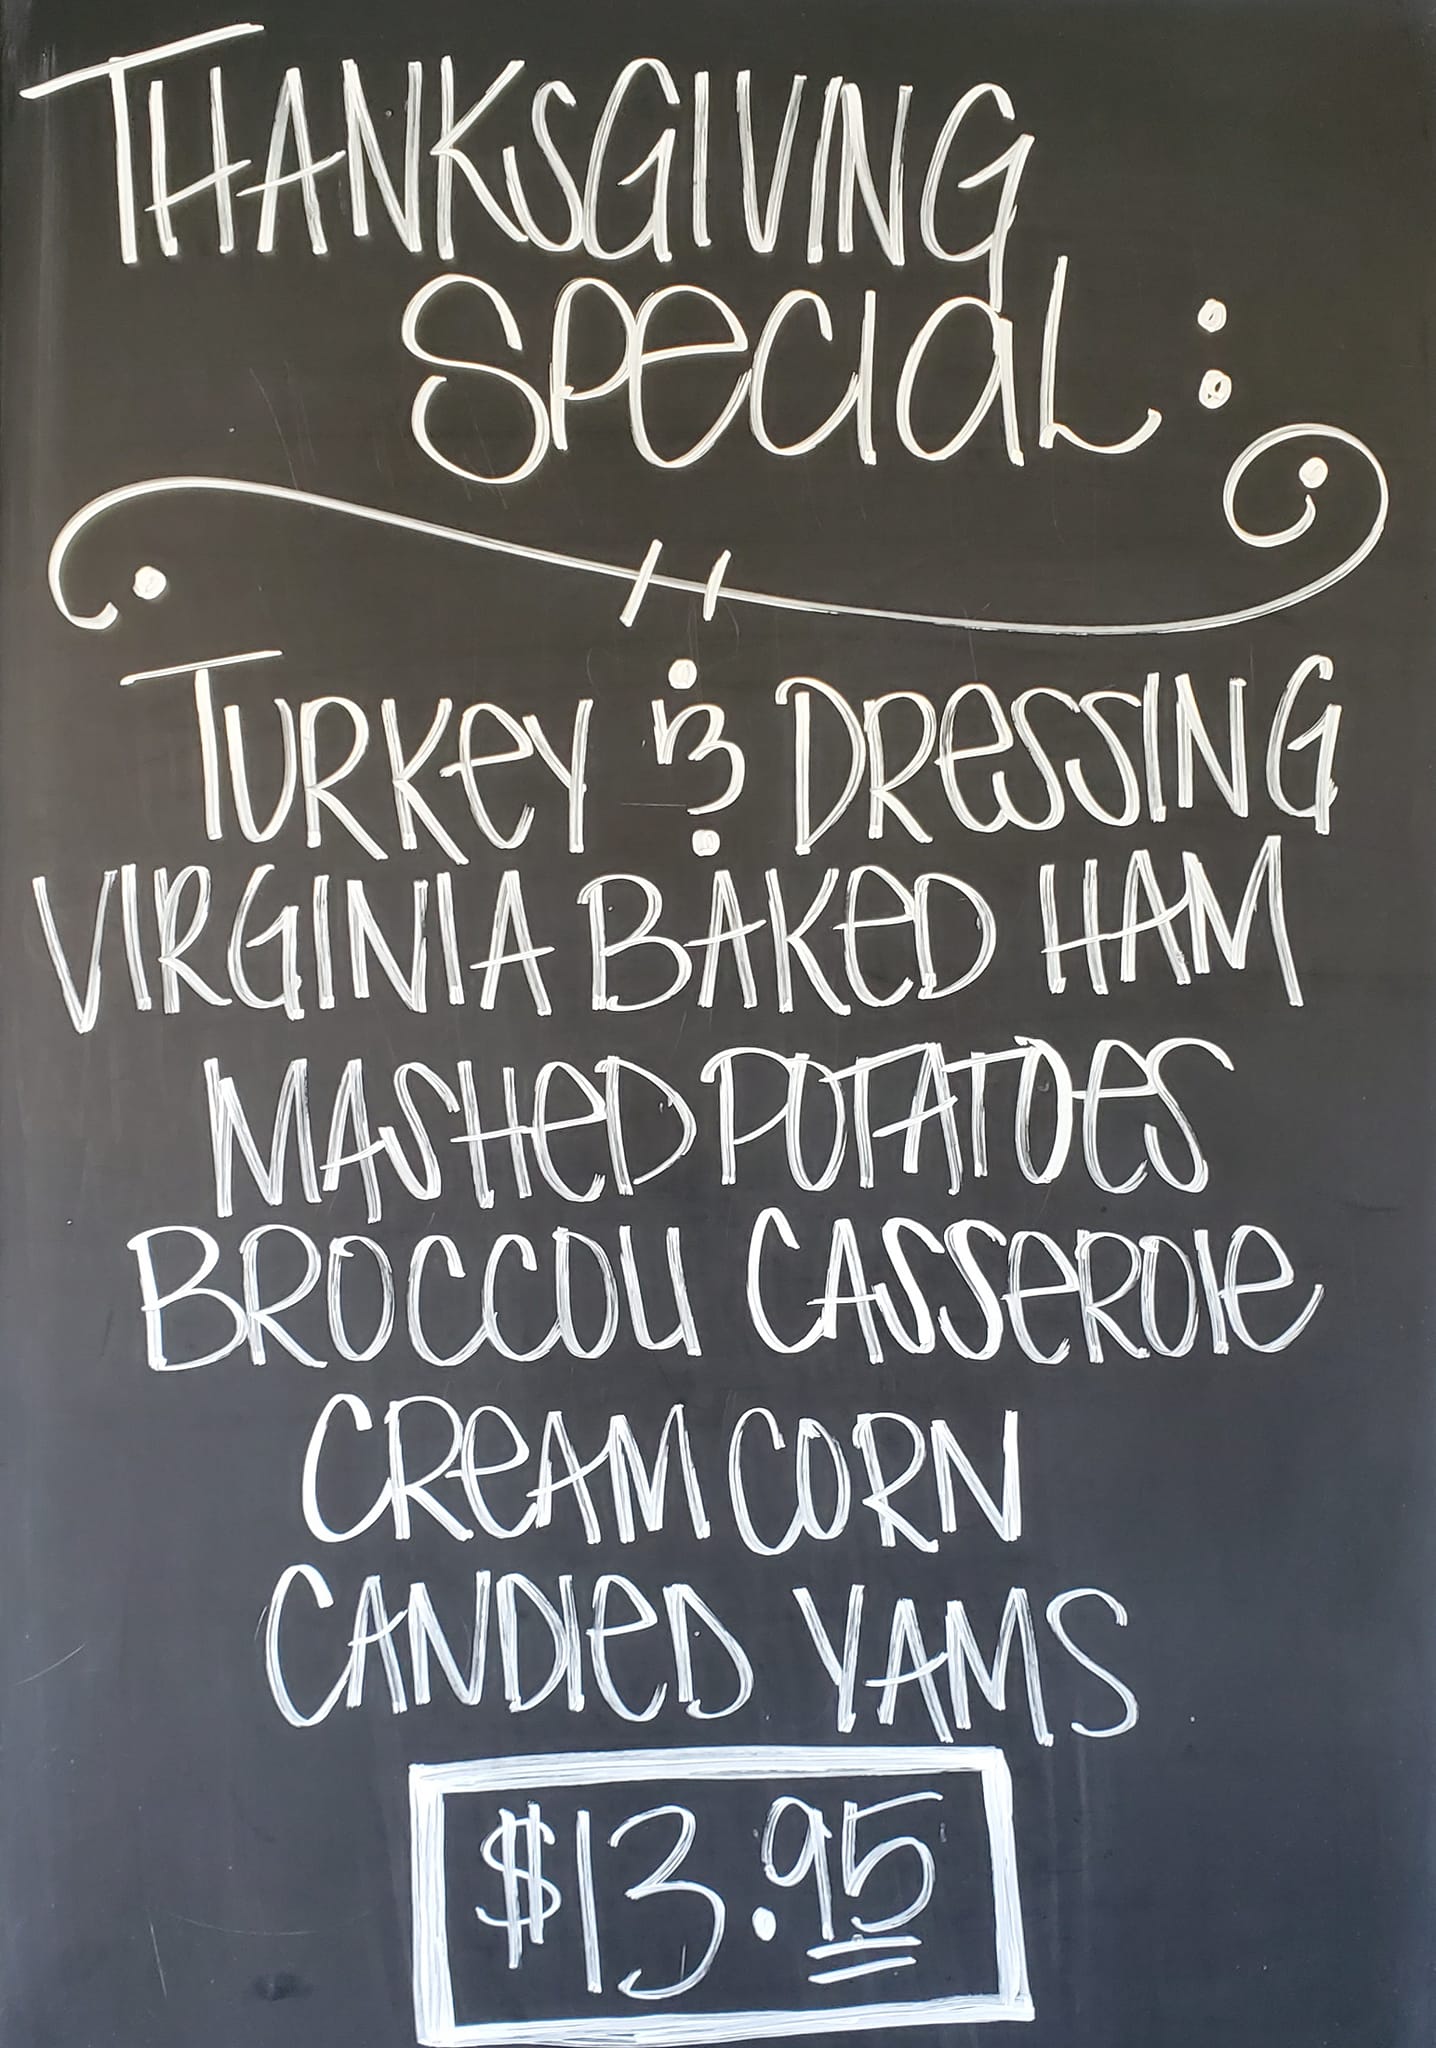 THANKSGIVING
SPeCIaL:
TURKeY & DReSSING
VIRGINIA BAKeD HAM
MASHeD POTATOeS
BROCCOLI CASSeROle
CReAM CORN
CANDIeD YAMS
$13.95